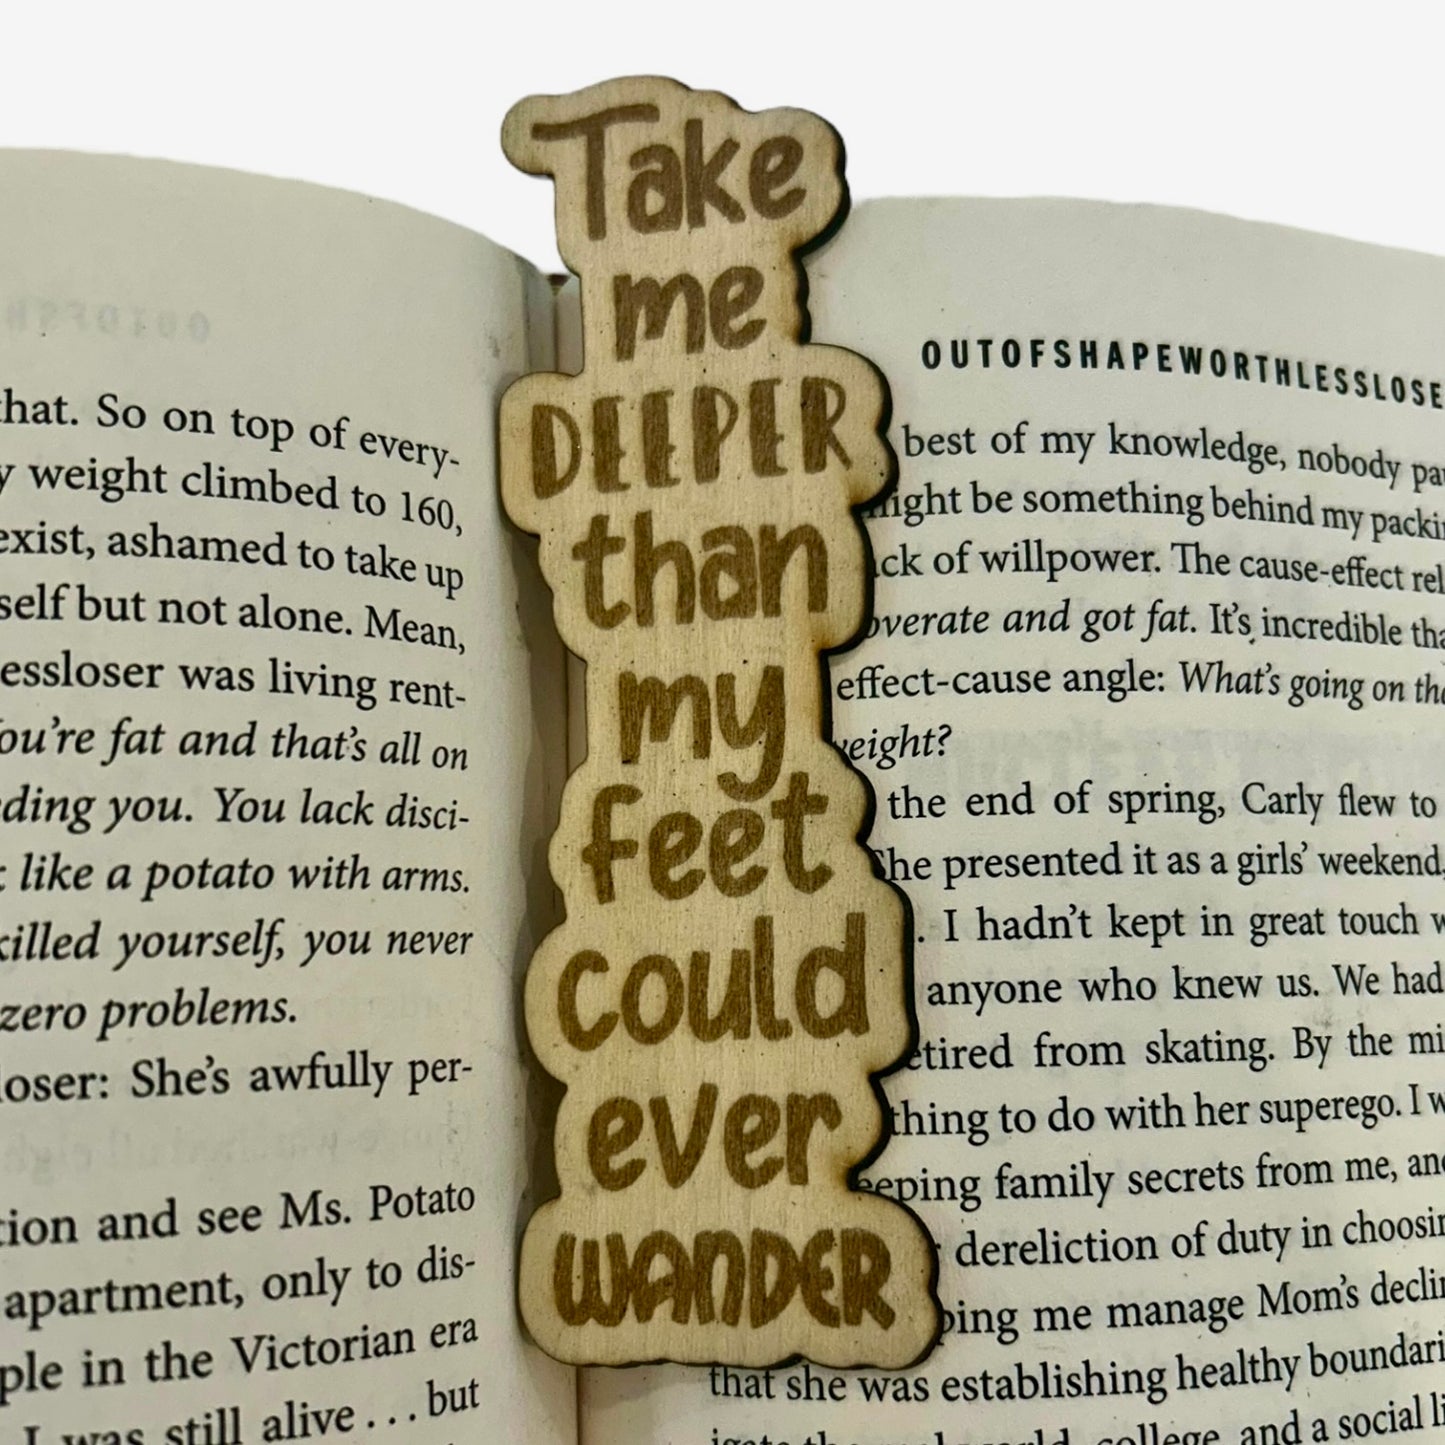 Take
me
DEEPER
than
my
feet
could
ever
WANDER
that. So on top of every-
weight climbed to 160,
exist, ashamed to take up
self but not alone. Mean,
essloser was living rent-
You're fat and that's all on
you. You lack disci-
like a potato with arms.
killed yourself, you never
zero problems.
loser: She's awfully per-
and see Ms. Potato
apartment, only to dis-
in the Victorian era
I was still alive . . . but
OUTOFSHAPEWORTHLESSLOSE
best of my knowledge, nobody
might be something behind my
of willpower. The cause-effect
overate and got fat. It's incredible
effect-cause angle: What's going on
weight?
the end of spring, Carly flew to
She presented it as a girls' weekend,
. I hadn't kept in great touch
anyone who knew us. We had
retired from skating. By the
thing to do with her superego. I
keeping family secrets from me,
dereliction of duty in
me manage Mom's
that she was establishing healthy
college, and a social